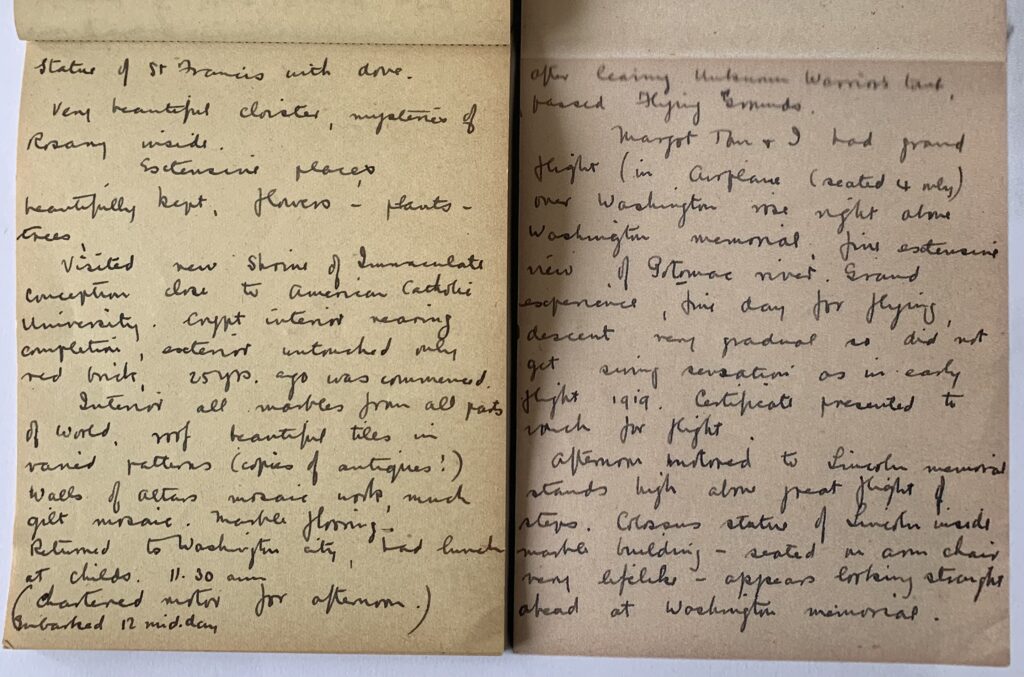 Statue of St Francis with dove.
Very beautiful cloister, mysteries of
Rosary inside.
Extensive places
beautifully kept, flowers - plants -
trees
Visited new Shrine of Immaculate
Conception close to American Catholic
University. Crypt interior nearing
completion, exterior untouched only
red brick, 25 yrs. ago was commenced.
Interior all marbles from all parts
of World, roof beautiful tiles in
varied patterns (copies of antiques!)
Walls of Altars mosaic work, much
gilt mosaic. Marble flooring.
Returned to Washington city, had lunch
at Childs. 11.30 am
(Chartered motor for afternoon.)
Embarked 12 mid.day
after leaving Unknown Warriors
passed Flying Grounds.
Margot & I had grand
flight (in Airplane (seated 4 only)
over Washington rose right above
Washington memorial, fine extensive
view of Potomac river. Grand
experience, fine day for flying,
descent very gradual so did not
get sensation as in early
flight 1919. Certificate presented to
vouch for flight
Afternoon motored to Lincoln memorial
stands high above great flight of
steps. Colossus statue of Lincoln inside
marble building - seated on arm chair
very lifelike - appears looking straight
ahead at Washington memorial.